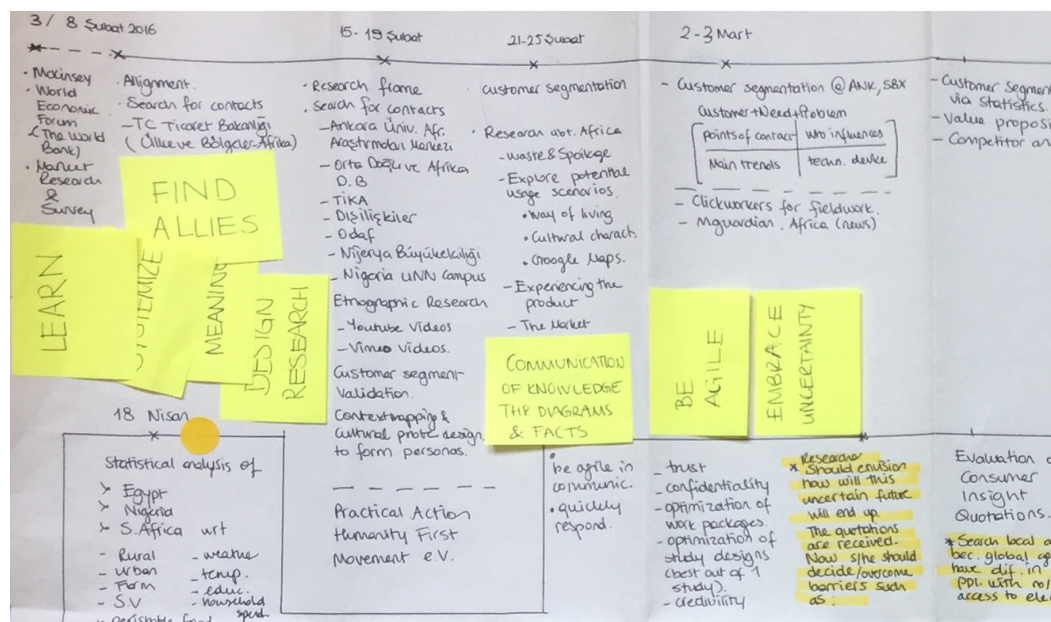 3/ 8 Şubat 2016
· Mckinsey
· World
Economic
Forum
(The World
Bank)
· Market
Research
&
Survey
· Allignment.
· Search for contacts
- TC Ticaret Bakanlığı
(Ülke ve Bölgeler-Afrika)
FIND
ALLIES
LEARN
MEANING
DESIGN
RESEARCH
15-19 Şubat
· Research frame
· Search for contacts
- Ankara Üniv. Afr.
Araştırmaları Merkezi
- Orta Doğu ve Afrika
D.B
- TİKA
- Dışilişkiler
- Odaf
- Nijerya Büyükelçiliği
- Nigeria UNN Campus
Etnographic Research
- Youtube Videos
- Vimeo Videos.
Customer segment
Validation.
Contextmapping &
Cultural probe design
to form personas.
Practical Action
Humanity First
Movement e.V.
21-25 Şubat
· customer segmentation
· Research abt. Africa
- Waste & Spoilage
- Explore potential
usage scenarios.
· Way of living
· Cultural charact.
· Google Maps.
- Experiencing the
product
- The Market
COMMUNICATION
OF KNOWLEDGE
THR DIAGRAMS
& FACTS
· be agile in
communic.
· quickly
respond.
2-3 Mart
- Customer segmentation @ ANK, SBX
Customer+Need+Problem
points of contact
who influences
Main trends
techn. device
- Clickworkers for fieldwork.
- Mguardian. Africa (news)
BE
AGILE
EMBRACE
UNCERTAINTY
- trust
- confidentiality
- optimization of
work packages
- optimization of
study designs
(best out of 1
study).
- credivility
Researcher
* Should envision
how will this
uncertain future
will end up.
The quotations
are received.
Now s/he should
decide/overcome
barriers such
as:
- Customer Segmen
via Statistics.
- Value proposi
- Competitor an
Evaluation
Consumer
Insight
Quotations.
* Search local
bec. global
have dif. in
ppl. with no/
access to ele
18 Nisan
Statistical analysis of
> Egypt
> Nigeria
> S. Africa wrt
- Rural
- urban
- Farm
- S.V
- weathe
- temp.
- educ.
- household
spend